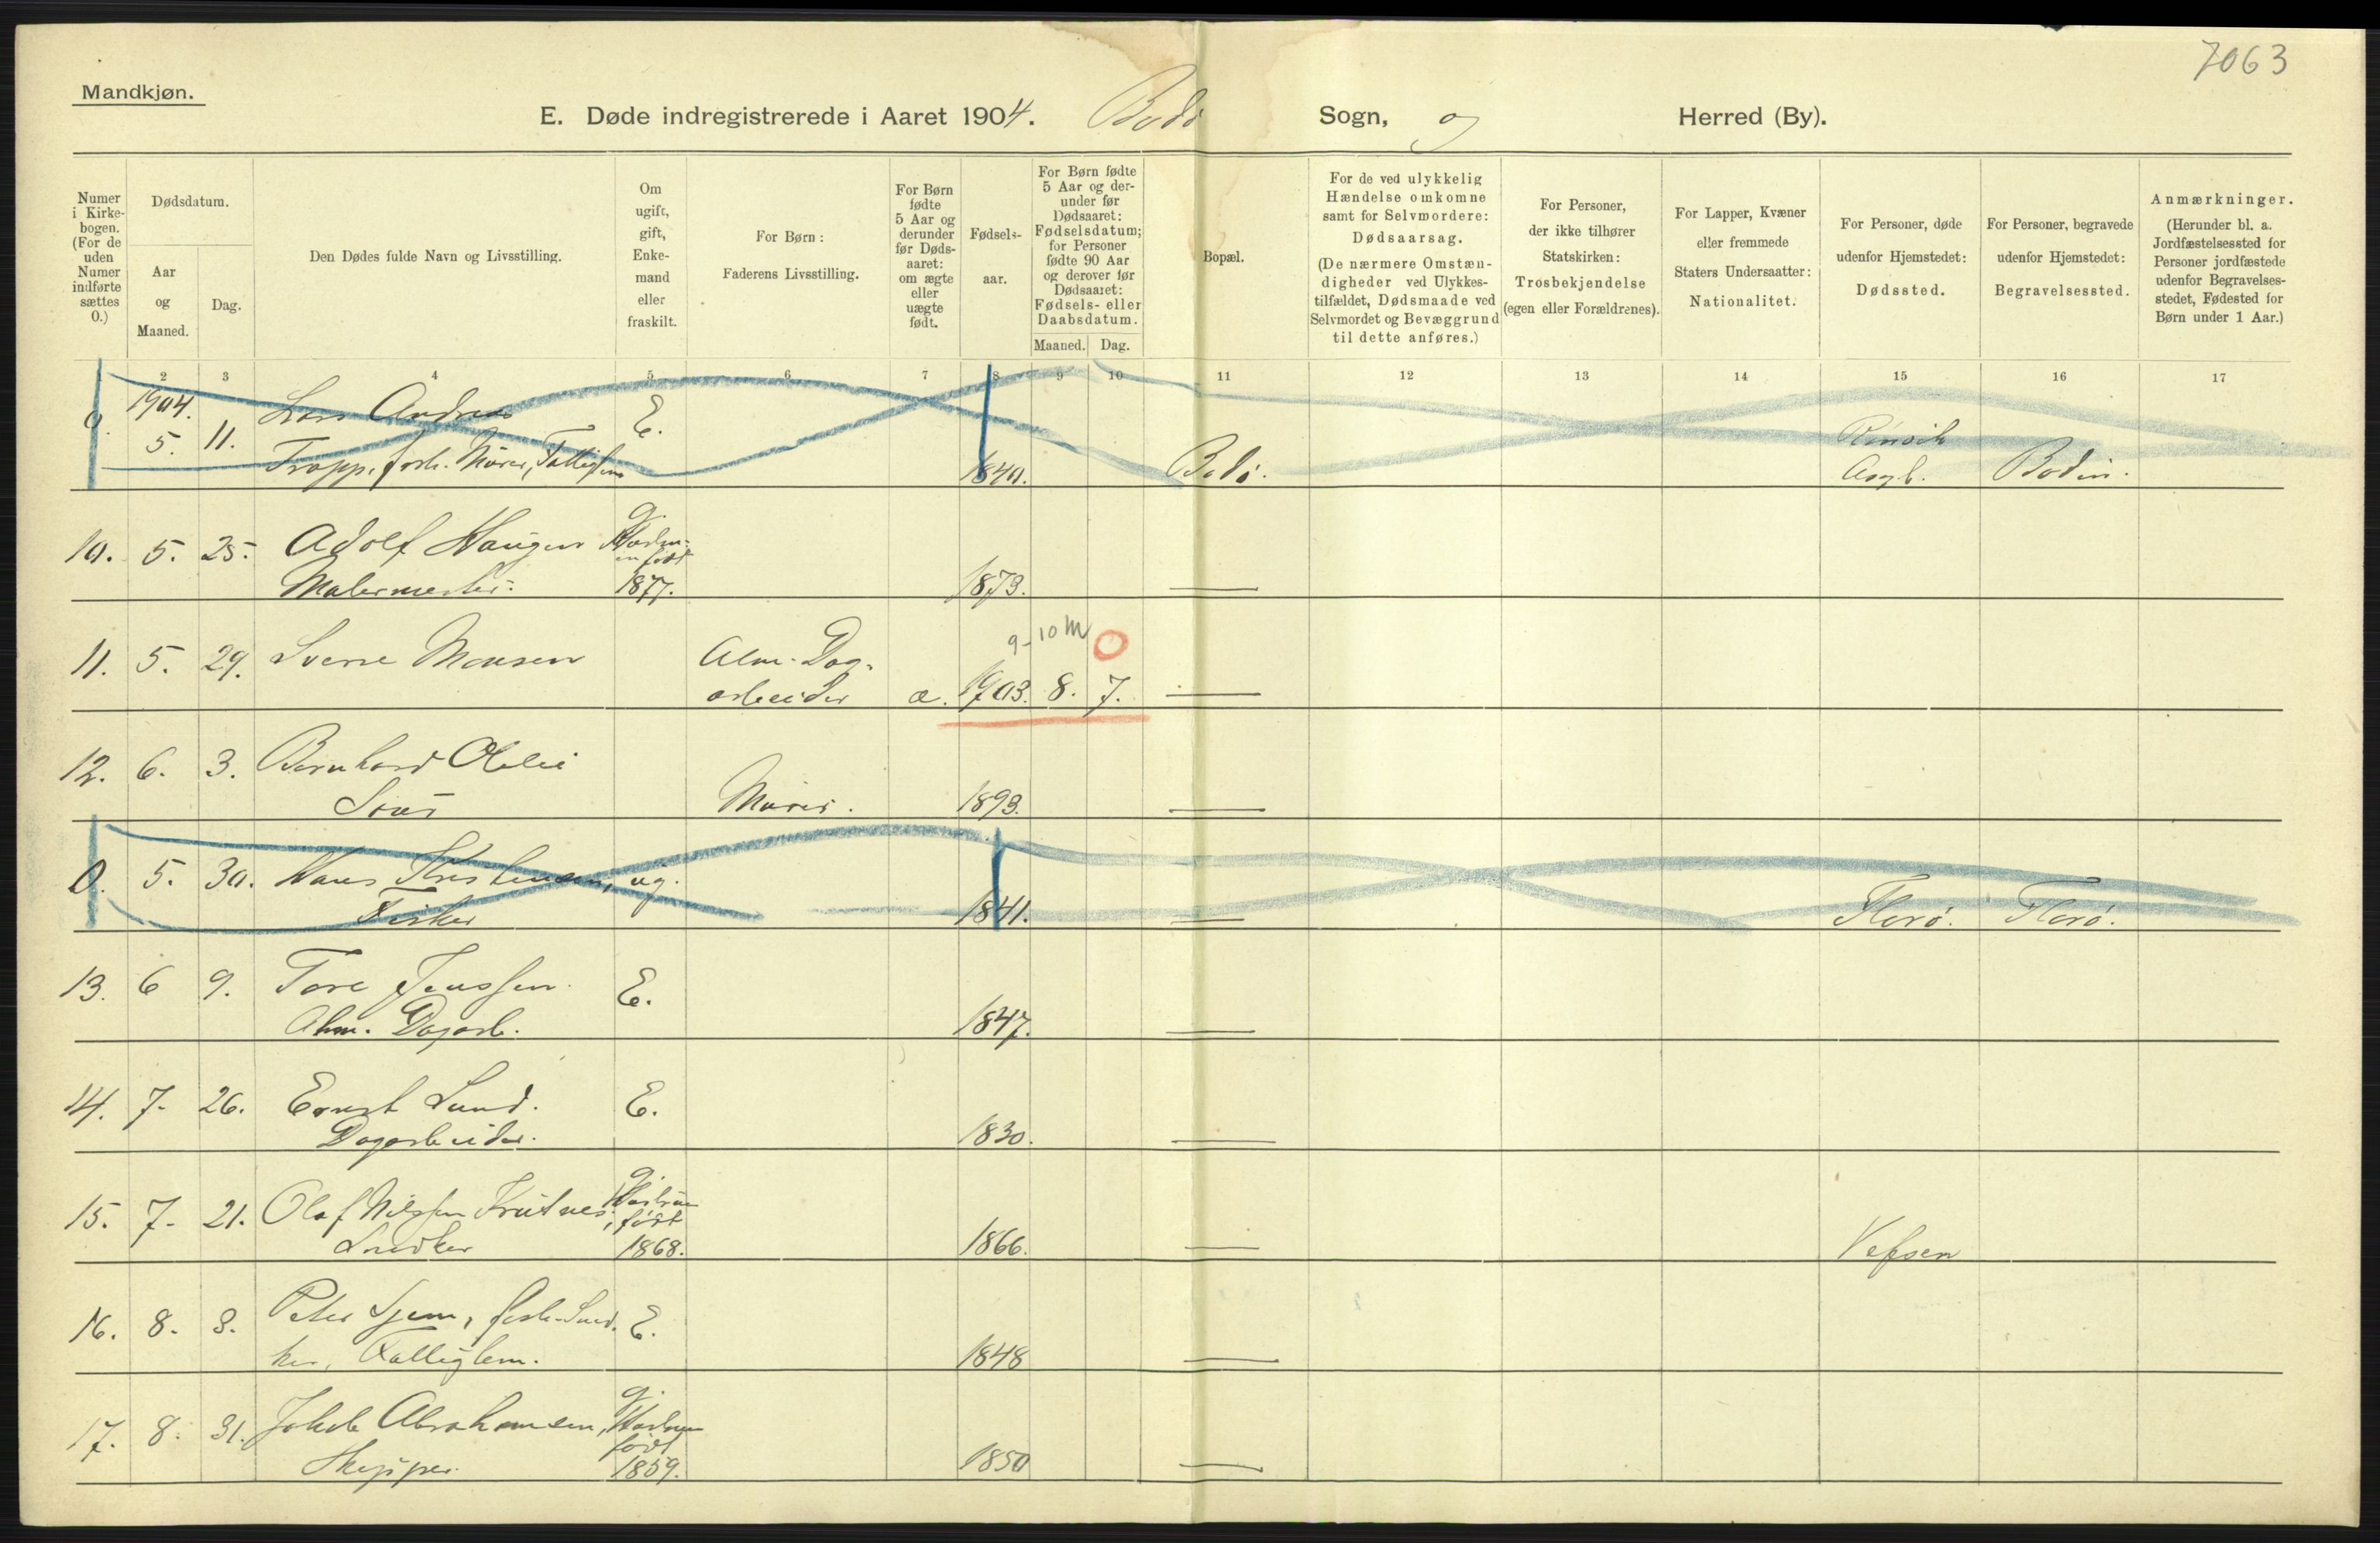 7063
Mandkjøn.
E. Døde indregistrerede i Aaret 1904. Bodø Sogn, og Herred (By).
Numer i Kirkebogen. (For de uden Numer indførte sættes 0.)
Dødsdatum.
Aar og Maaned.
Dag.
Den Dødes fulde Navn og Livsstilling.
Om ugift, gift, Enkemand eller fraskilt.
For Børn: Faderens Livsstilling.
For Børn fødte 5 Aar og derunder før Dødsaaret: om ægte eller uægte født.
Fødselsaar.
For Børn fødte 5 Aar og derunder før Dødsaaret: Fødselsdatum; for Personer fødte 90 Aar og derover før Dødsaaret: Fødsels- eller Daabsdatum.
Maaned. Dag.
Bopæl.
For de ved ulykkelig Hændelse omkomne samt for Selvmordere: Dødsaarsag. (De nærmere Omstændigheder ved Ulykkestilfældet, Dødsmaade ved Selvmordet og Bevæggrund til dette anføres.)
For Personer, der ikke tilhører Statskirken: Trosbekjendelse (egen eller Forældrenes).
For Lapper, Kvæner eller fremmede Staters Undersaatter: Nationalitet.
For Personer, døde udenfor Hjemstedet: Dødssted.
For Personer, begravede udenfor Hjemstedet: Begravelsessted.
Anmærkninger. (Herunder bl. a. Jordfæstelsessted for Personer jordfæstede udenfor Begravelsesstedet, Fødested for Børn under 1 Aar.)
1 2 3 4 5 6 7 8 9 10 11 12 13 14 15 16 17
0. 1904. 5. 11. Lars Andreas E. Rønvik
Tropp, forh. Murer, 1840. Bodø. Asyl. Bodin.
10. 5. 25. Adolf Haugen g. Hustruen født
Malermester. 1877. 1873.
9-10 M
11. 5. 29. Sverre Monsen Alm. Dag-
arbeider æ. 1903. 8. 7.
12. 6. 3. Bernhard
Murer. 1893.
0. 5. 30. Hans Kristensen, ug.
Fisker 1841. Florø. Florø.
13. 6 9. Tore Jenssen. E.
Alm. Dagarb. 1847.
14. 7. 26. Ernst Lund. E.
Dagarbeider. 1830.
15. 7. 21. Olaf Nilssen g. Hustruen født
Snedker 1868. 1866. Vefsen
16. 8. 3. Peter forh. Sned- E.
ker, Fattiglem. 1848
17. 8. 31. Jakob Abrahamsen, g. Hustruen født
Skipper. 1859. 1850